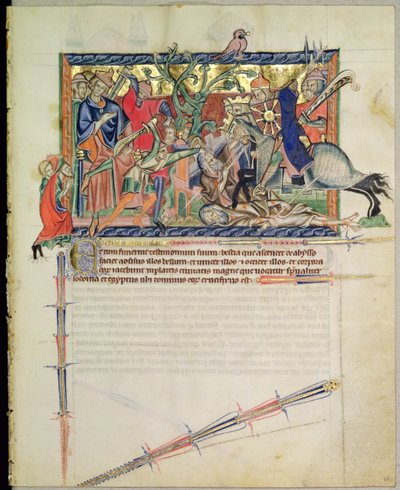 Cum finierint testimonium suum: bestia que ascendet de abysso
faciet aduersus illos bellum. et uincet illos. et occidet illos. et corpora
eor. iacebunt in plateis ciuitatis magne que uocatur spiritualiter
sodoma et egyptus ubi dominus eor. crucifixus est.